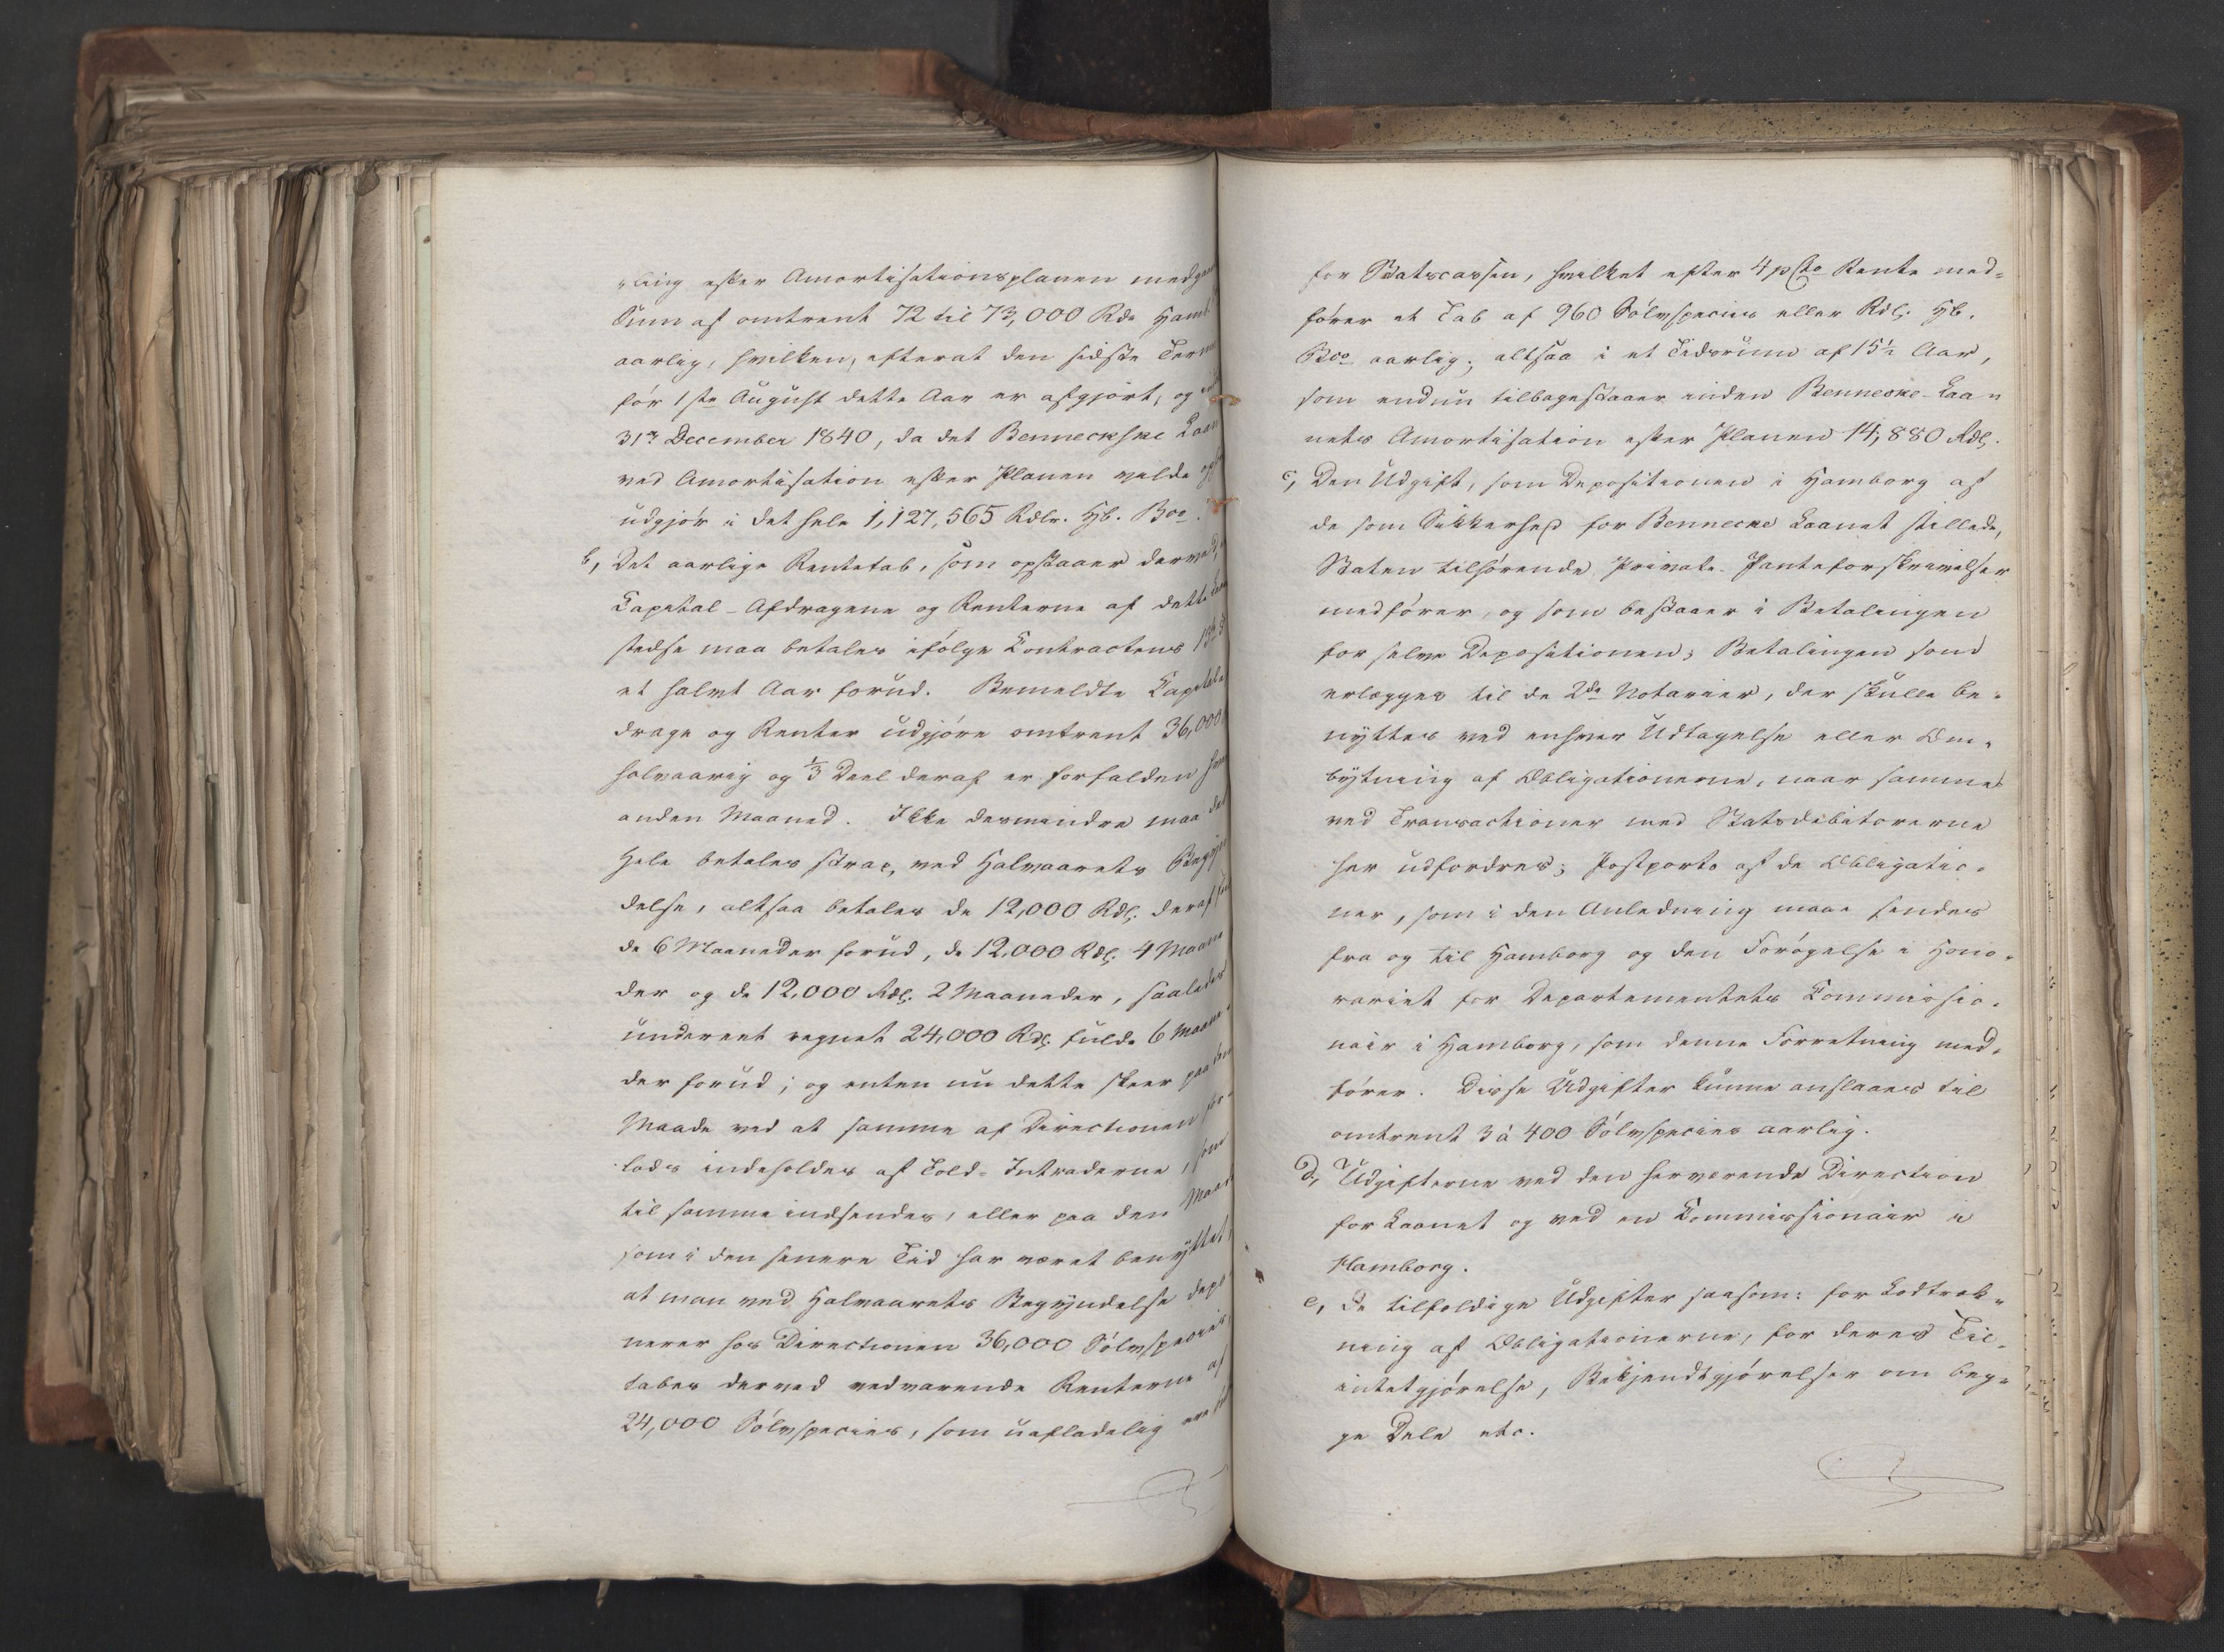 „ling efter Amortisationsplanen medgaa
Sum af omtrent 72 til 73,000 Rdr Hamb
aarlig, hvilken, efterat den sidste Term
før 1ste August dette Aar er afgjort, og
31te December 1840, da det Benneckske Laan
ved Amortisation efter Planen vilde
udgjør i det hele 1,127,565 Rdlr. Hb. Bco.
b, Det aarlige Rentetab, som opstaaer derved,
Capital-Afdragene og Renterne af dette
stedse maa betales ifølge Contractens 13de
et halvt Aar forud. Bemeldte Capital
drage og Renter udgjøre omtrent 36,000
halvaarig og 1/3 Deel deraf er forfalden
anden Maaned. Ikke desmindre maa det
Hele betales strax, ved Halvaarets Begyn
delse, altsaa betales de 12,000 Rdl. deraf
de 6 Maaneder forud, de 12,000 Rdl. 4 Maane
der og de 12,000 Rdl. 2 Maaneder, saaledes
underent regnet 24,000 Rdl. fulde 6 Maane
der forud; og enten nu dette skeer paa den
Maade ved at samme af Directionen for-
lods indeholdes af Told-Intraderne, som
til samme indsendes, eller paa den Maade
som i den senere Tid har været benyttet,
at man ved Halvaarets Begyndelse depo
nerer hos Directionen 36,000 Sølvspecies
tabes derved vedvarende Renterne af
24,000 Sølvspecies, som uafladelig ere
for Statscassen, hvilket efter 4 pCto Rente med-
fører et Tab af 960 Sølvspecies eller Rdl. Hb.
Bco aarlig; altsaa i et Tidsrum af 15½ Aar,
som endnu tilbagestaaer inden Bennecke-Laa-
nets Amortisation efter Planen 14,880 Rdl.
c, Den Udgift, som Depositionen i Hamborg af
de som Sikkerhed for Bennecke Laanet stillede,
Staten tilhørende Private-Panteforskrivelser
medfører, og som bestaaer i Betalingen
for selve Depositionen; Betalingen som
erlægges til de 2de Notarier, der skulle be-
nyttes ved enhver Udtagelse eller Om-
bytning af Obligationerne, naar samme
ved Transactioner med Statsdebitorerne
her udfordres; Postporto af de Obligatio-
ner, som i den Anledning maae sendes
fra og til Hamborg og den Forøgelse i Hono-
rariet for Departementets Commissio-
nair i Hamborg, som denne Forretning med-
fører. Disse Udgifter kunne anslaaes til
omtrent 3 à 400 Sølvspecies aarlig.
d, Udgifterne ved den herværende Direction
for Laanet og ved en Commissionair i
Hamborg.
e, De tilfældige Udgifter saasom: for Lodtræk-
ning af Obligationerne, for deres Til-
intetgjørelse, Bekjendtgjørelser om beg-
ge Dele etc.